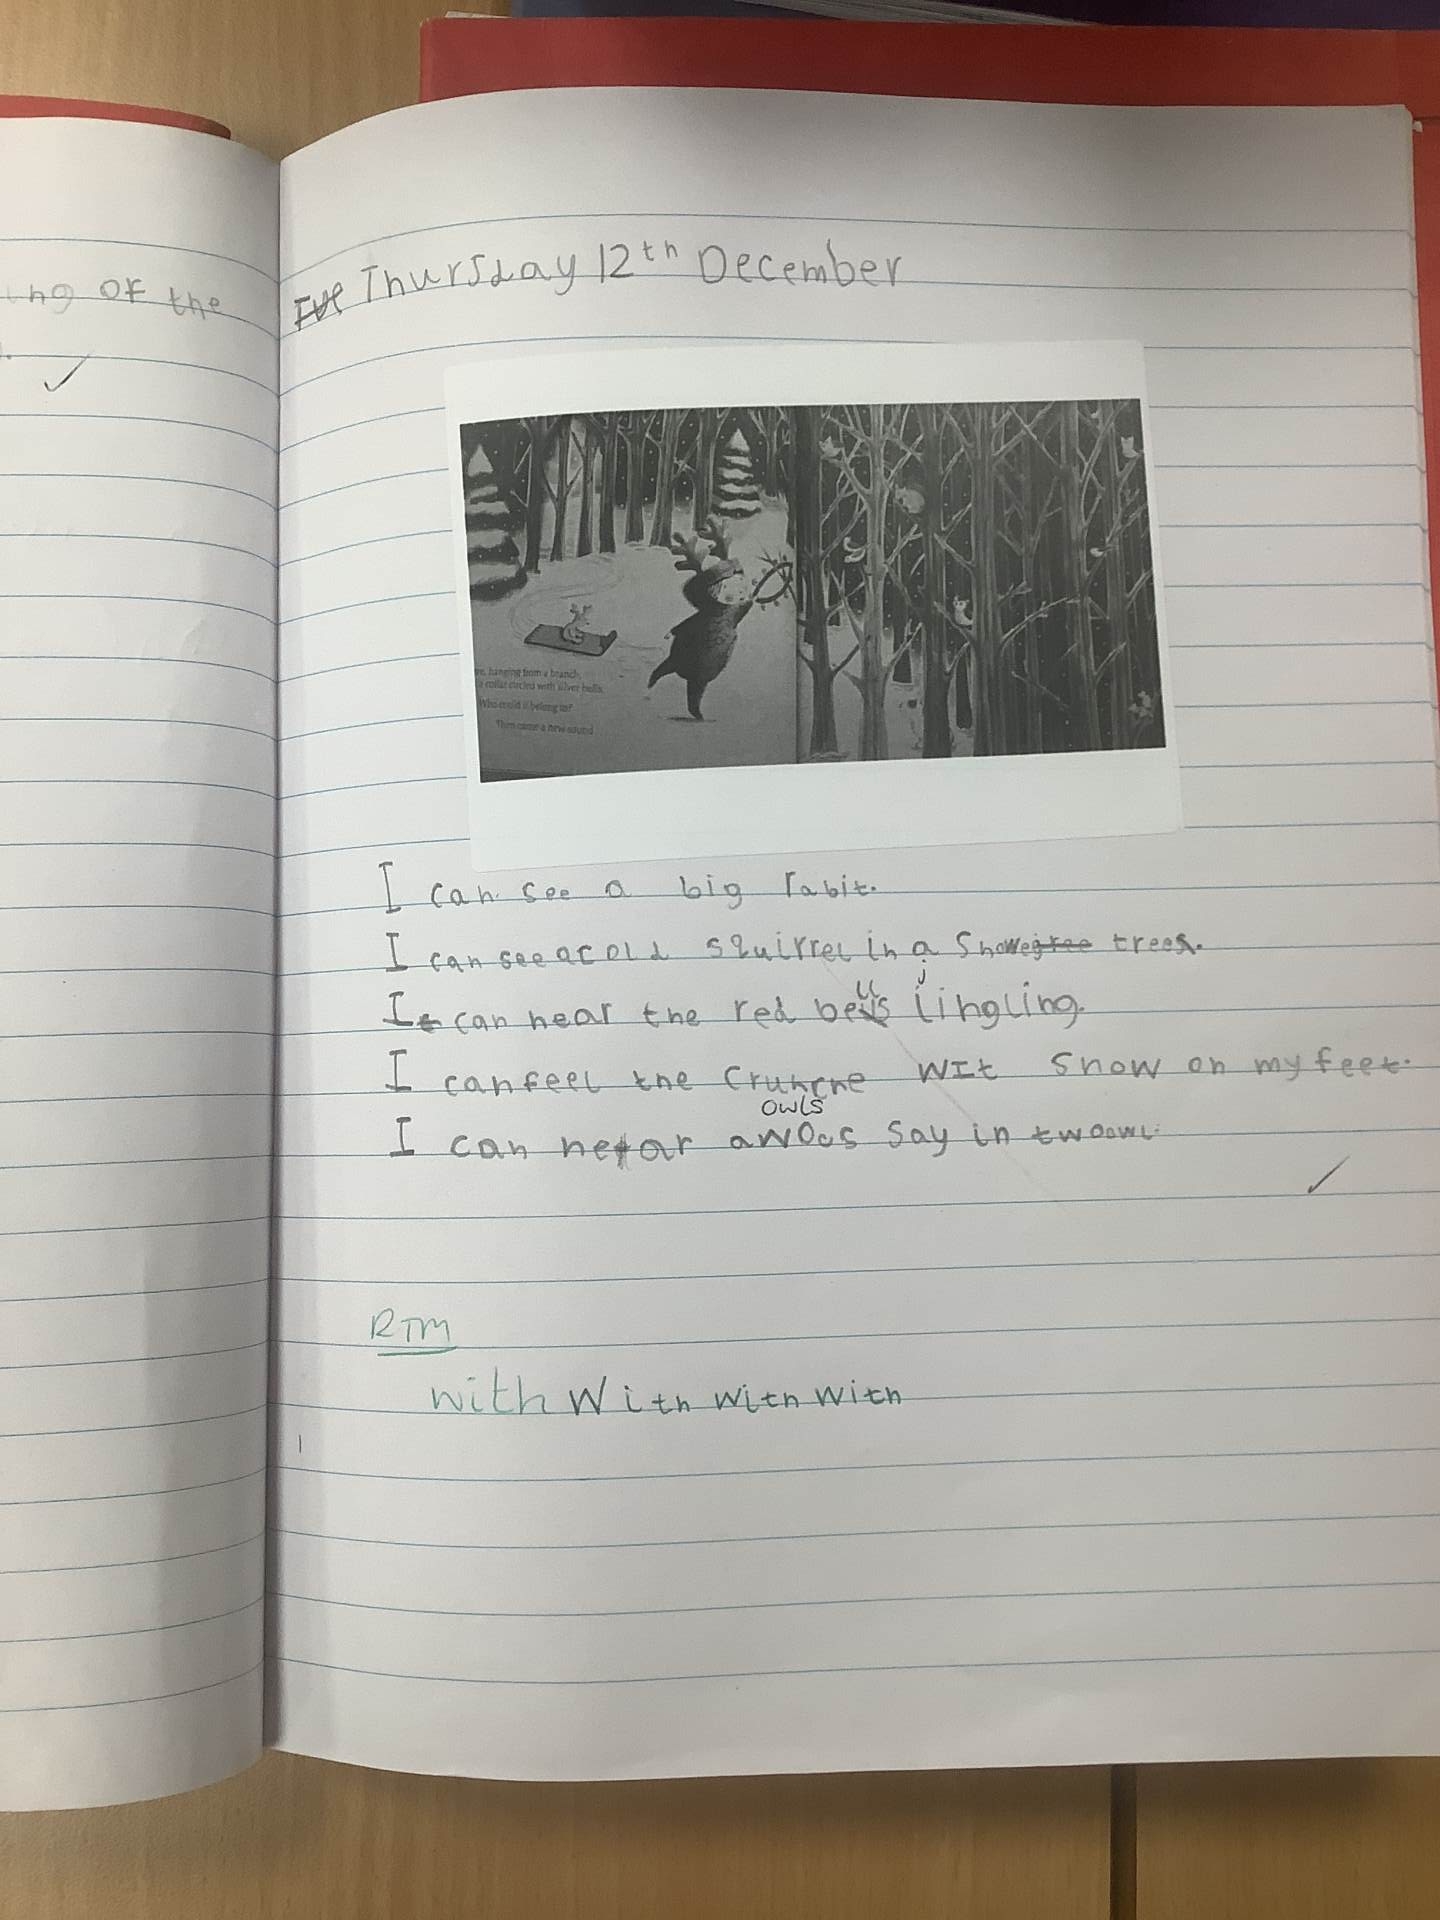 ing of the
.
Thursday 12th December
re, hanging from a branch,
a collar circled with silver bells.
Who could it belong to?
Then came a new sound
I can see a big rabit.
I can see a cold squirrel in a Snowe trees.
I can hear the red bells jingling.
I can feel the Crunche wit Snow on my feet.
owls
I can hear say in twoowl.
RTM
with With with with